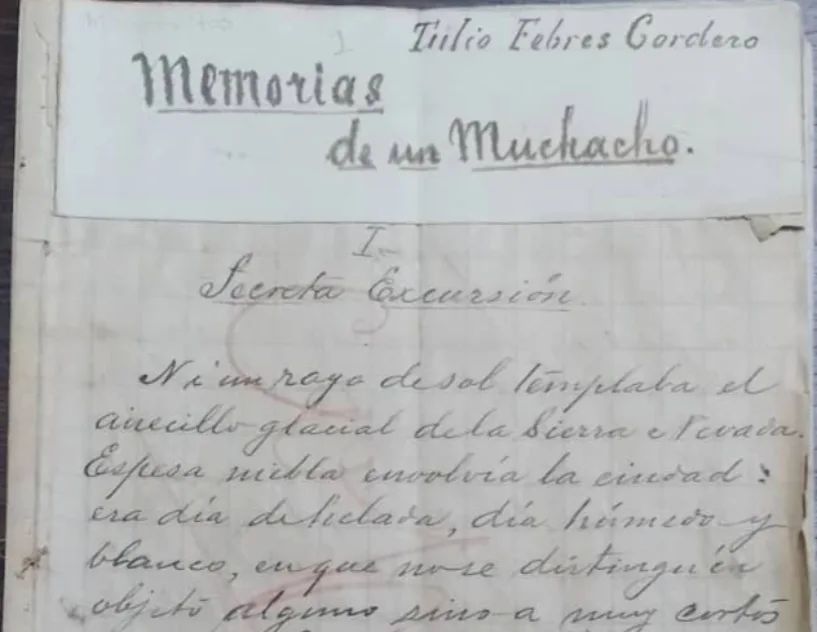 Tulio Febres Cordero
Memorias
de un Muchacho.
I
Secreta Excursión
Ni un rayo de sol templaba el
airecillo glacial de la Sierra Nevada.
Espesa niebla envolvía la ciudad:
era día de helada, día húmedo y
blanco, en que no se distinguía
objeto alguno sino a muy cortos